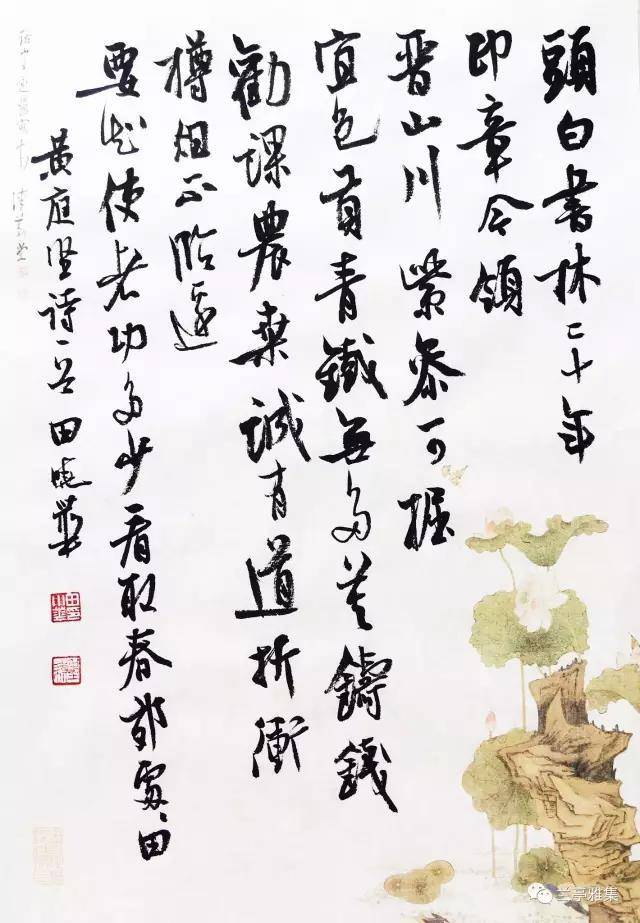 頭白書林二十年
印章今領
晋山川紫參可掘
宜包貢青鐵無多莫鑄錢
勸課農桑誠有道折衝
樽俎不臨邊
要知使者功多少看取春郊處々田
黄庭坚詩一首田曉華
兰亭雅集